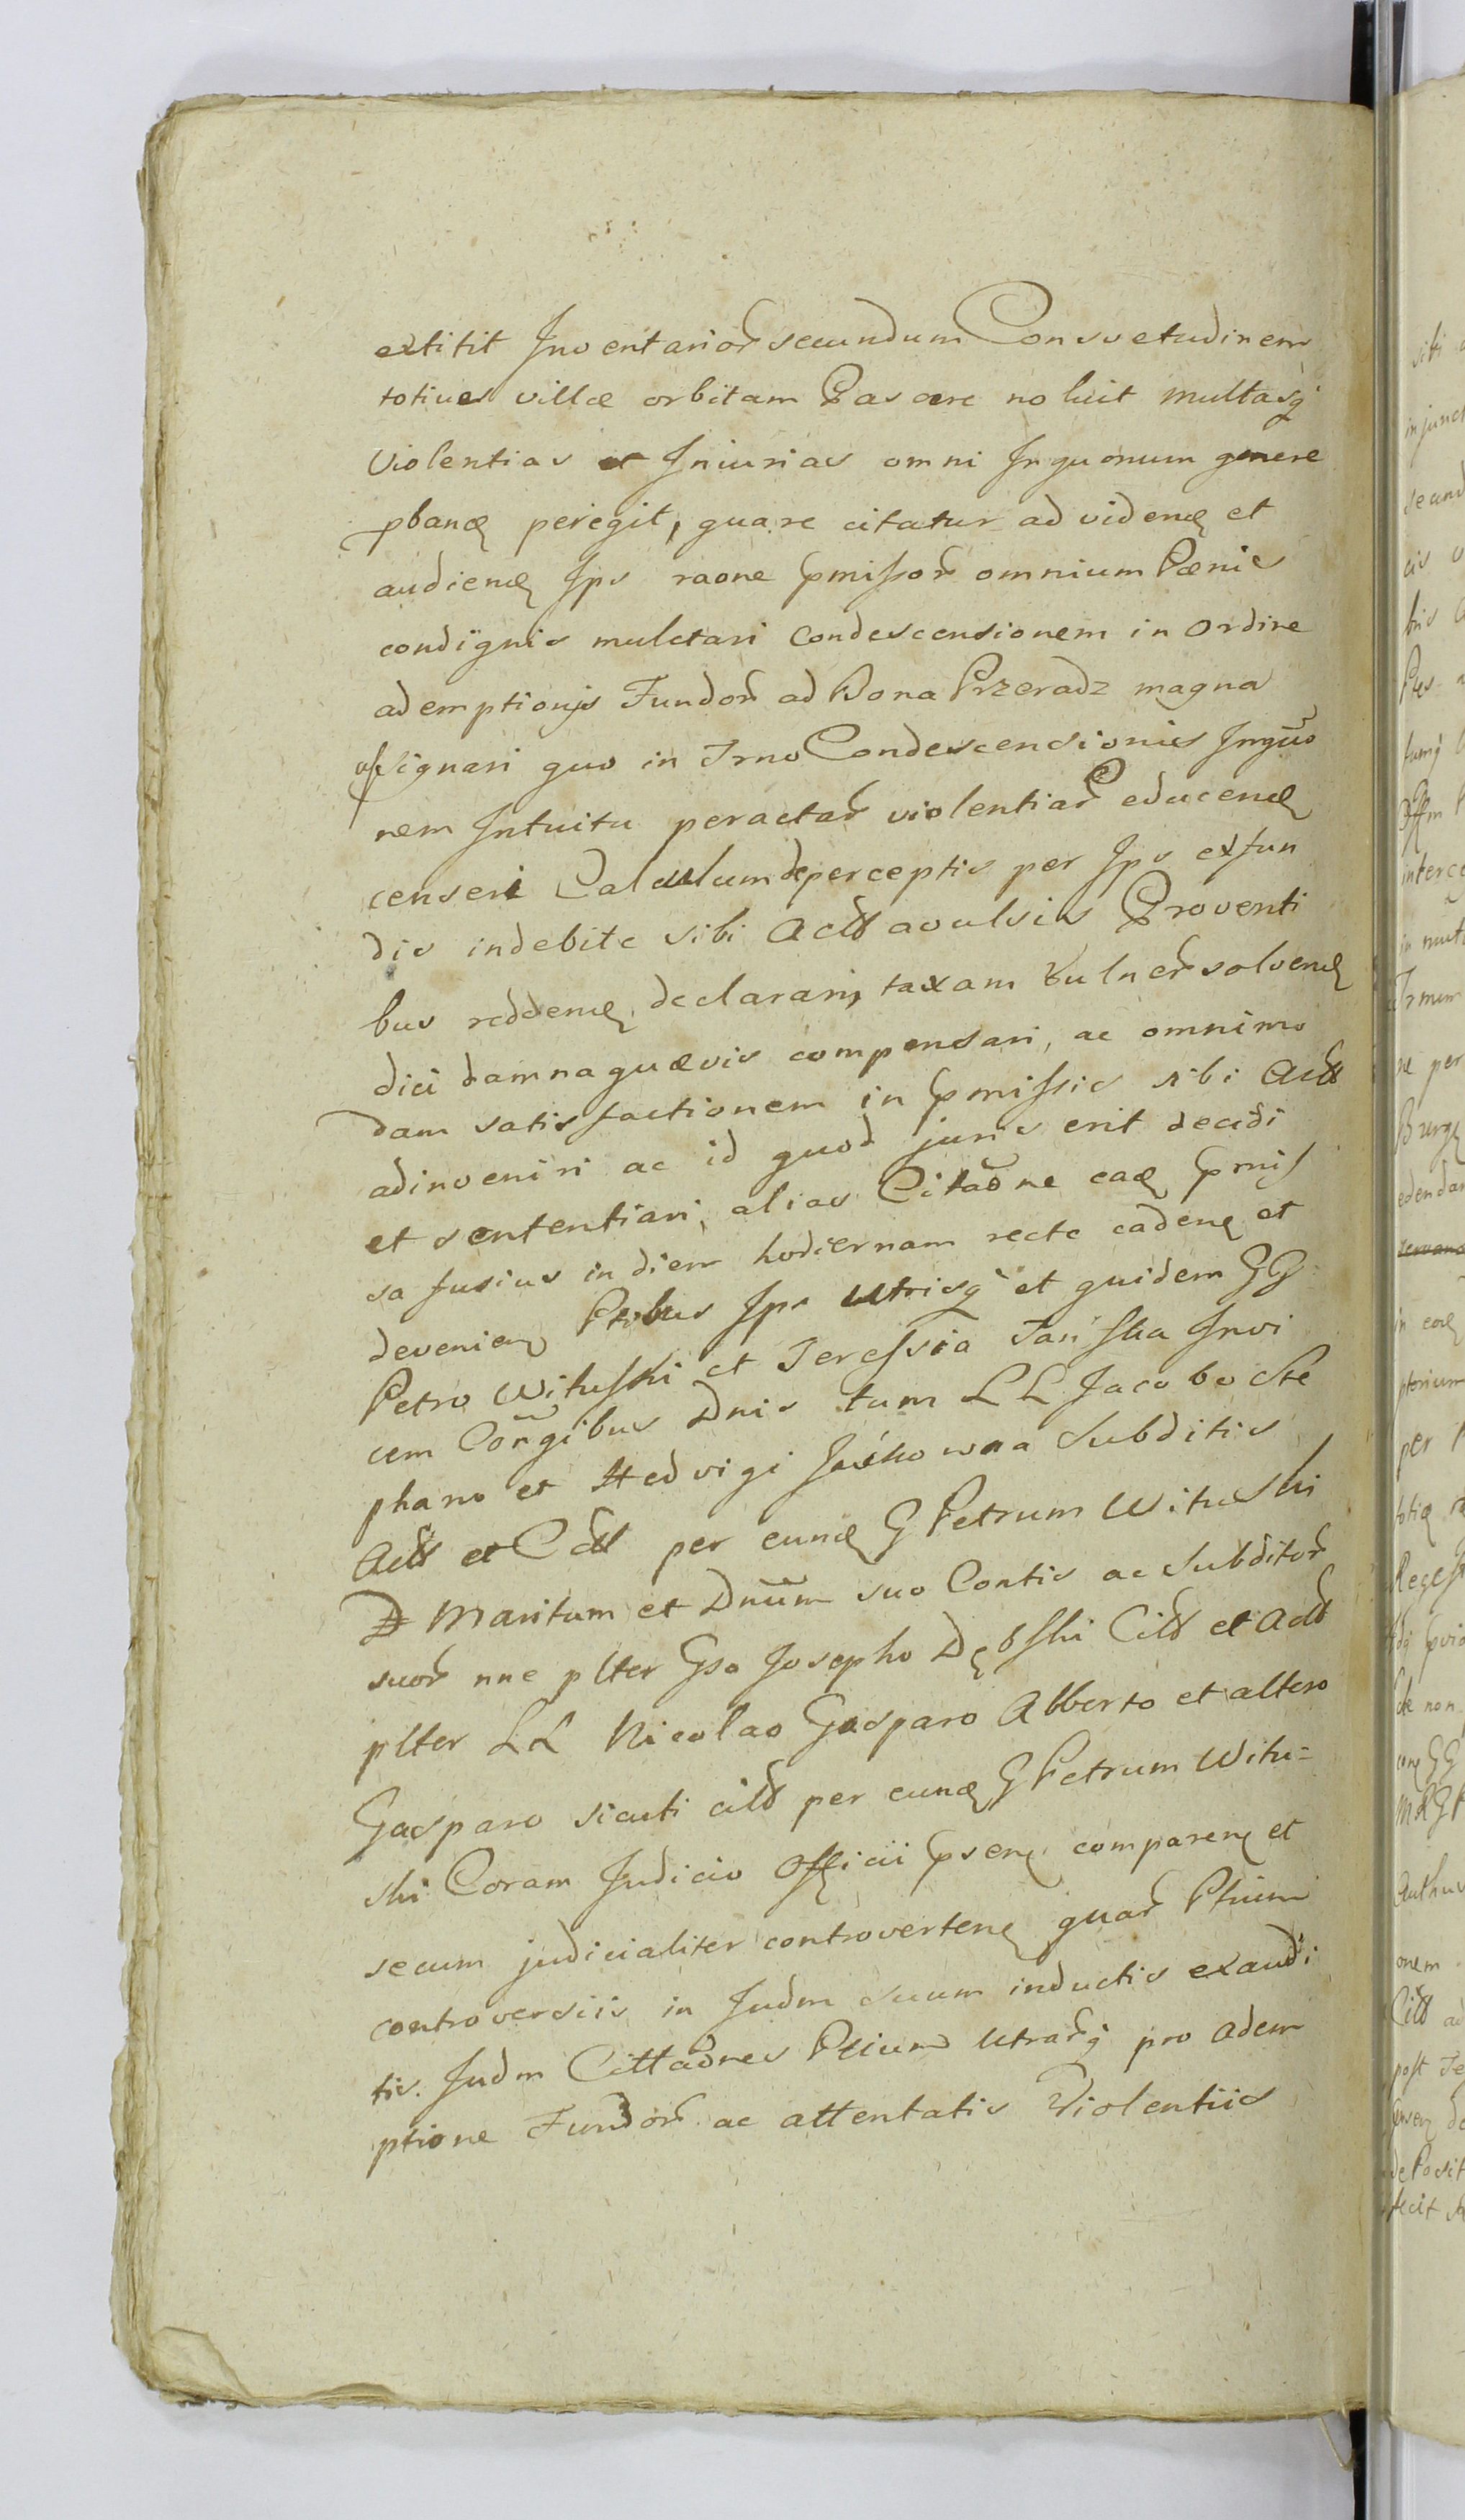 extitit Inventarior secundum Consvetudinem
totius villæ orbitam Pascere noluit multasq
violentias et Iniurias omni Inquonum genere
pbanđ peregit, quare citatur ad videnđ et
audienđ Ips raone pmissor omnium Pænis
condignis mulctari Condescensionem in ordine
ademptionis Fundor ad Bona Przeradz magna
assignari quo in Trno Condescensionis Inquo
nem Intuitu peractar violentiar educenđ
censeri Calculum de perceptis per Ips ex fun
dis indebite sibi Actt avulsis Proventi
bus reddenđ declarari, taxam vulner solvenđ
dici damna quævis compensari, ac omnimo
dam satisfactionem in pmissis sibi Actt
adinveniri ac id quod juris erit decidi
et sententiari, alias Citaone eađ pmis
sa fusius in diem hodiernam recte cadenđ et
devenien Ptibus Ips utrisq et quidem GG
Petro Wituski et Teressia Tariska Invi
cem Congibus Dnis tum LL Jacobo Ste
phano et Hedvigi Jaśkowna Subditis
Actt et Citt per eunđ G Petrum Wituski
D Maritum et Dnum suo Contis ac Subditor
suor nne plter Gso Josepho Dębski Citt et Actt
plter LL Nicolao Gasparo Alberto et altero
Gasparo sicuti citt per eunđ G Petrum Witu-
ski Coram Judicio Officii psenę comparenę et
secum judicialiter controvertenę quar Ptium
controversiis in Judm suum inductis exaudi
tis. Judm Cittaones Ptium utrarq pro adem
ptione Fundor ac attentatis Violentiis